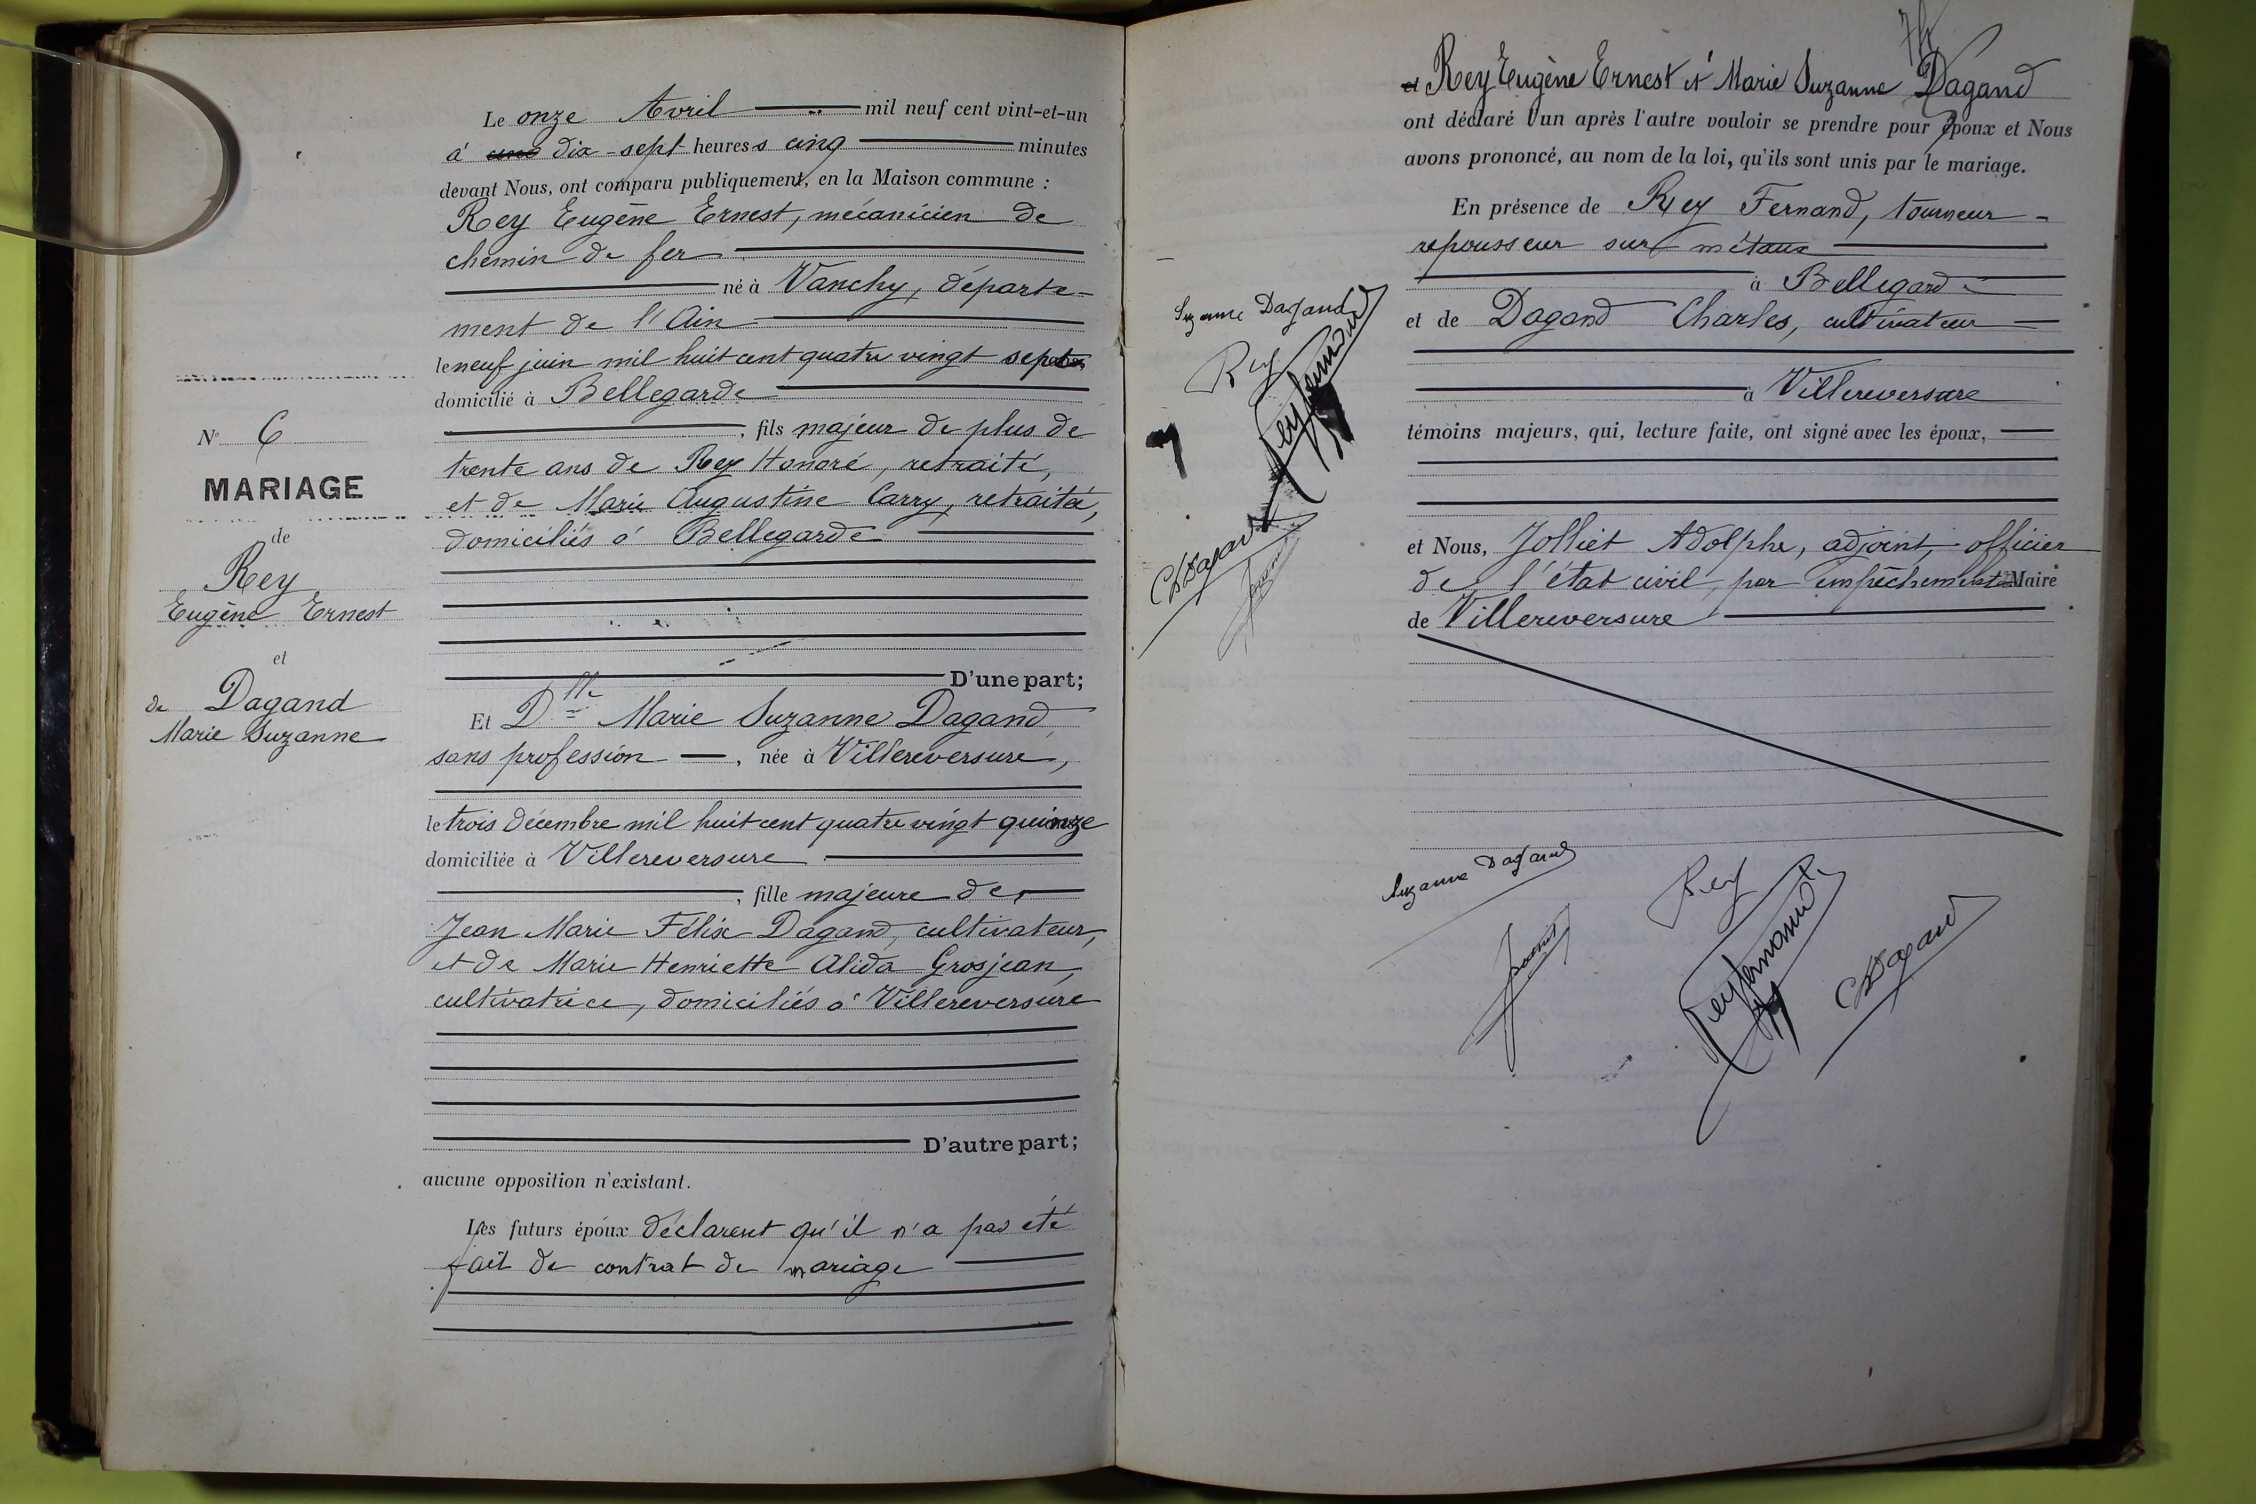 Le onze Avril mil neuf cent vint-et-un
à cinq dix-sept heures cinq minutes
devant Nous, ont comparu publiquement, en la Maison commune :
Rey Eugène Ernest, mécanicien de
chemin de fer
né à Vanchy, départe-
ment de l'Ain
le neuf juin mil huit cent quatre vingt sept
domicilié à Bellegarde
, fils majeur de plus de
trente ans de Rey Honoré, retraité,
et de Marie Augustine Carry, retraitée,
domiciliés à Bellegarde
D'une part;
Et Dlle Marie Suzanne Dagand
sans profession, née à Villereversure,
le trois décembre mil huit cent quatre vingt quinze
domiciliée à Villereversure
, fille majeure de
Jean Marie Félix Dagand, cultivateur,
et de Marie Henriette Alida Grosjean,
cultivatrice, domiciliés à Villereversure
D'autre part;
aucune opposition n'existant.
Les futurs époux déclarent qu'il n'a pas été
fait de contrat de mariage
N° 6
MARIAGE
de
Rey
Eugène Ernest
et
de Dagand
Marie Suzanne
et Rey Eugène Ernest et Marie Suzanne Dagand
ont déclaré l'un après l'autre vouloir se prendre pour époux et Nous
avons prononcé, au nom de la loi, qu'ils sont unis par le mariage.
En présence de Rey Fernand, tourneur-
repousseur sur métaux
à Bellegarde
et de Dagand Charles, cultivateur
à Villereversure
témoins majeurs, qui, lecture faite, ont signé avec les époux,
et Nous, Jolliet Adolphe, adjoint, officier
de l'état civil, par empêchement Maire
de Villereversure
Suzanne Dagand
Rey
Rey Fernand
Ch Dagand
Suzanne Dagand
Rey
Rey Fernand
Ch Dagand